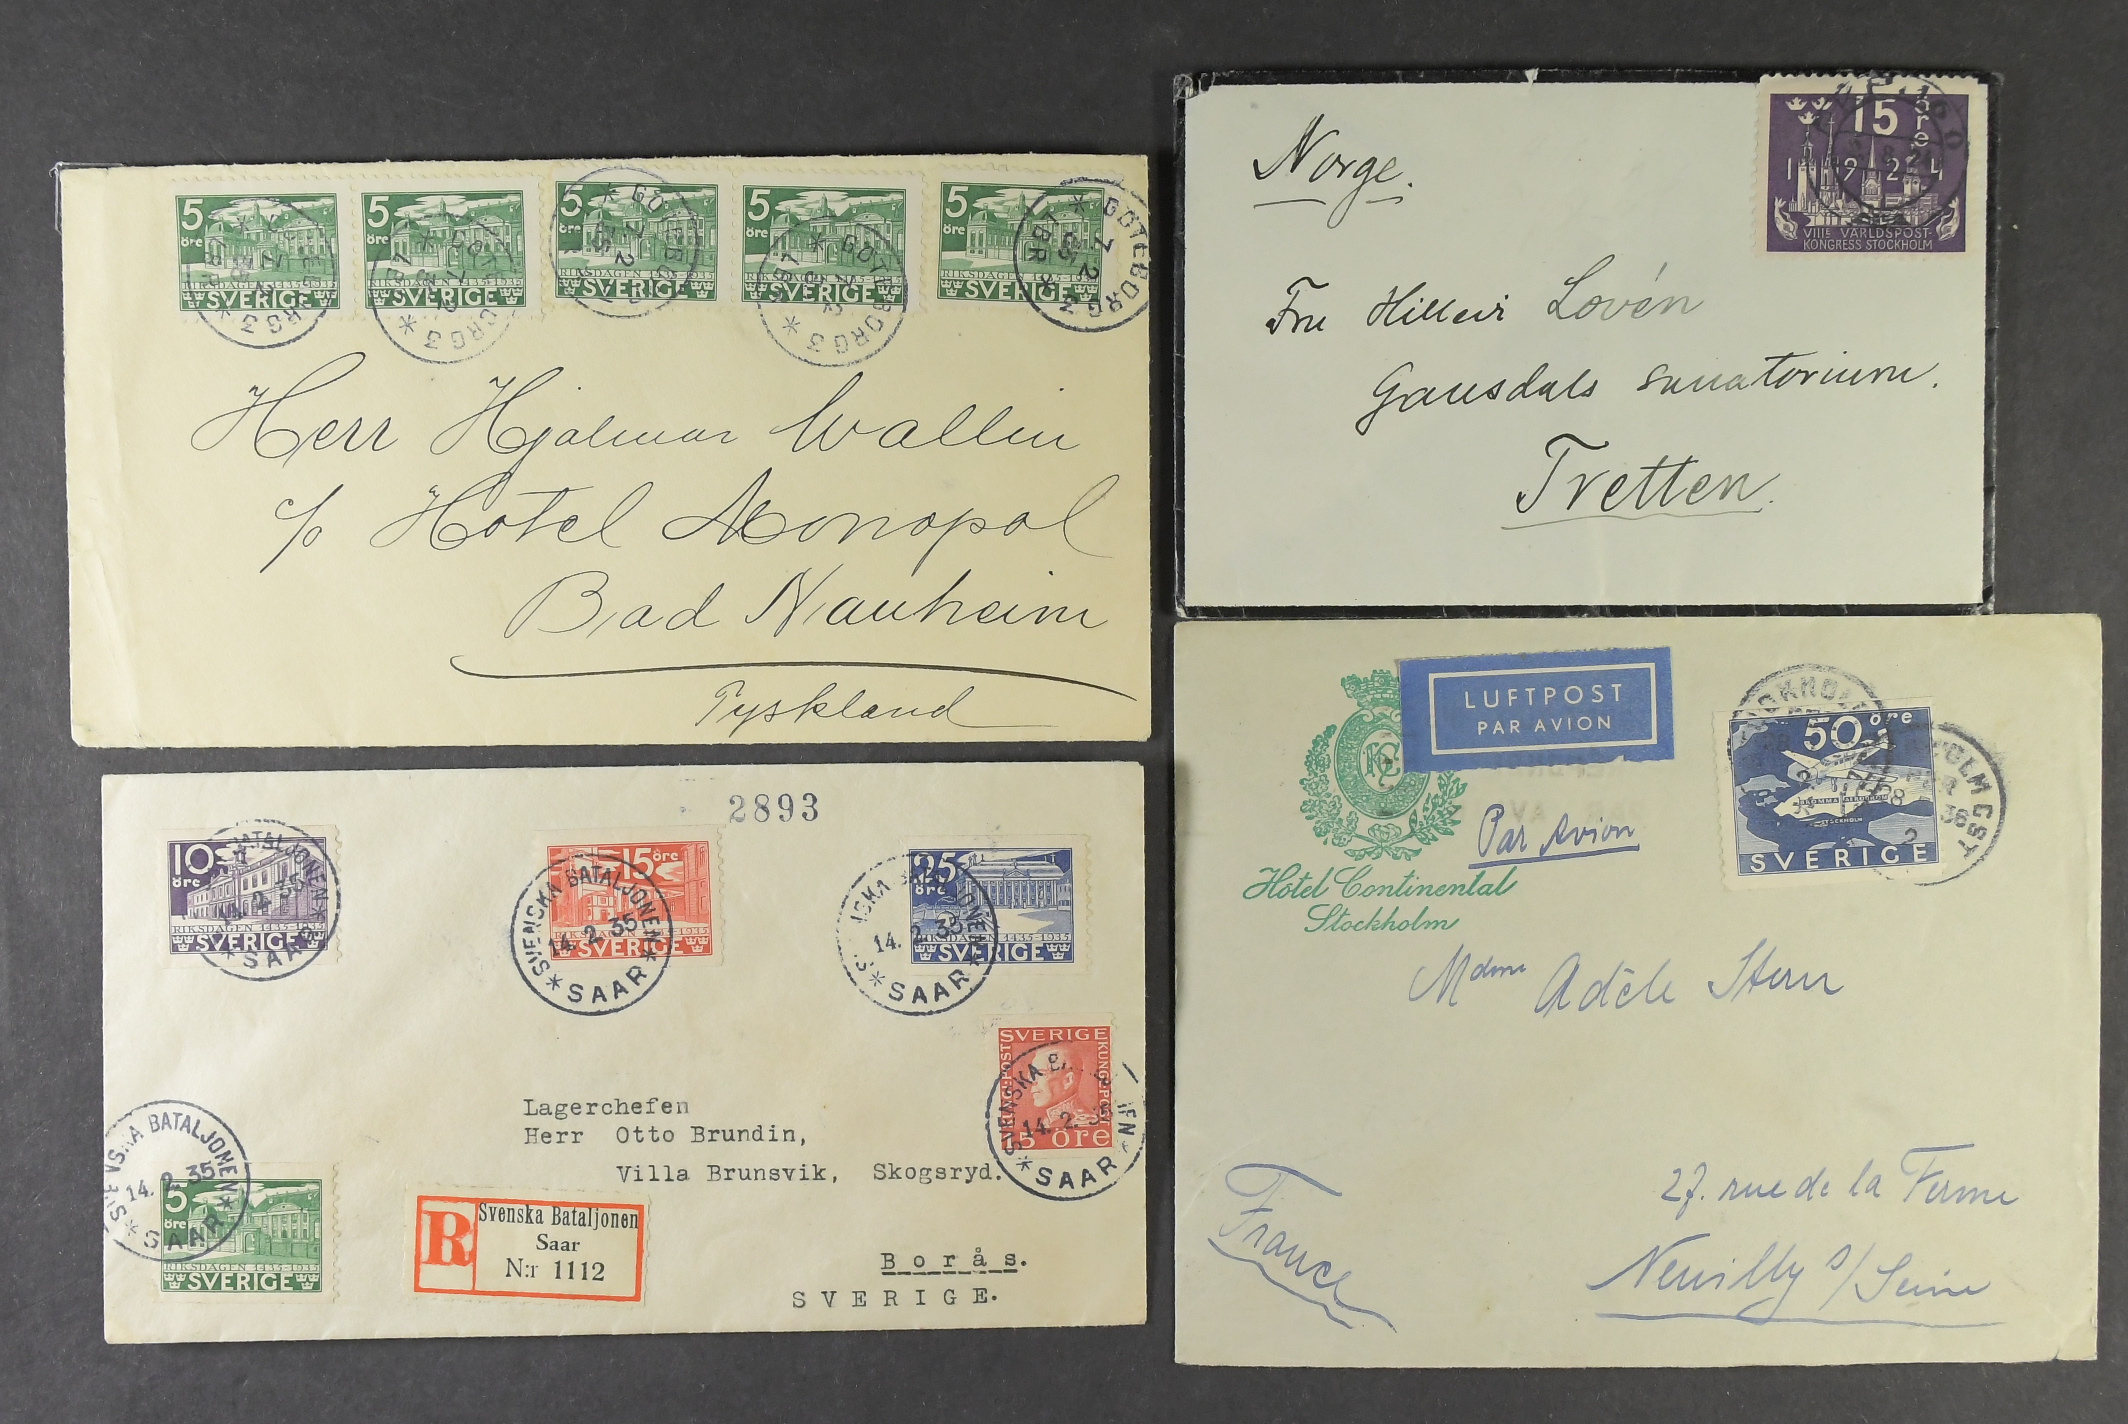 5 öre
RIKSDAGEN 1435-1935
SVERIGE
5 öre
RIKSDAGEN 1435-1935
SVERIGE
5 öre
RIKSDAGEN 1435-1935
SVERIGE
5 öre
RIKSDAGEN 1435-1935
SVERIGE
5 öre
RIKSDAGEN 1435-1935
SVERIGE
* GÖTEBORG 3 *
7 2
35
LBR
Herr Hjalmar Wallin
c/o Hotel Monopol
Bad Nauheim
Tyskland
15 öre
1924
VIIIE VÄRLDSPOST-
KONGRESS STOCKHOLM
Norge.
Fru
Lovén
Gausdals sanatorium.
Tretten.
2893
10 öre
RIKSDAGEN 1435-1935
SVERIGE
SVENSKA BATALJONEN
14. 2. 35
* SAAR *
15 öre
RIKSDAGEN 1435-1935
SVERIGE
SVENSKA BATALJONEN
14. 2. 35
* SAAR *
25 öre
RIKSDAGEN 1435-1935
SVERIGE
SVENSKA BATALJONEN
14. 2. 35
* SAAR *
SVERIGE
KUNGL. POST
15 öre
SVENSKA BATALJONEN
14. 2. 35
* SAAR *
Lagerchefen
Herr Otto Brundin,
Villa Brunsvik, Skogsryd.
Borås.
SVERIGE.
SVENSKA BATALJONEN
14. 2. 35
* SAAR *
5 öre
RIKSDAGEN 1435-1935
SVERIGE
R
Svenska Bataljonen
Saar
N:r 1112
LUFTPOST
PAR AVION
HC
Hôtel Continental
Stockholm
Par Avion
50 öre
BROMMA AERODROM
STOCKHOLM
SVERIGE
STOCKHOLM
28
2
36
Mdme Adèle Stern
27. rue de la Ferme
Neuilly s/ Seine
France